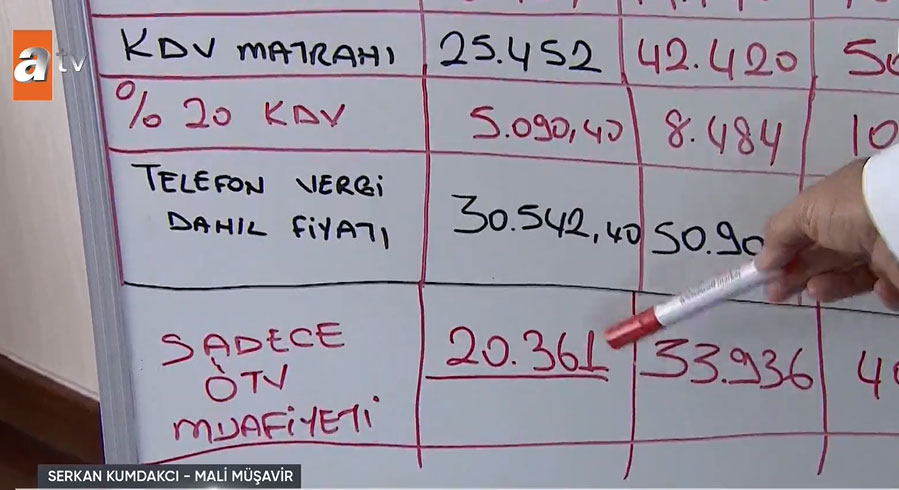 atv
KDV MATRAHI 25.452 42.420
% 20 KDV 5.090,40 8.484 10
TELEFON VERGİ
DAHİL FİYATI 30.542,40 50.90
SADECE 20.361 33.936
ÖTV
MUAFİYETİ
SERKAN KUMDAKCI - MALİ MÜŞAVİR